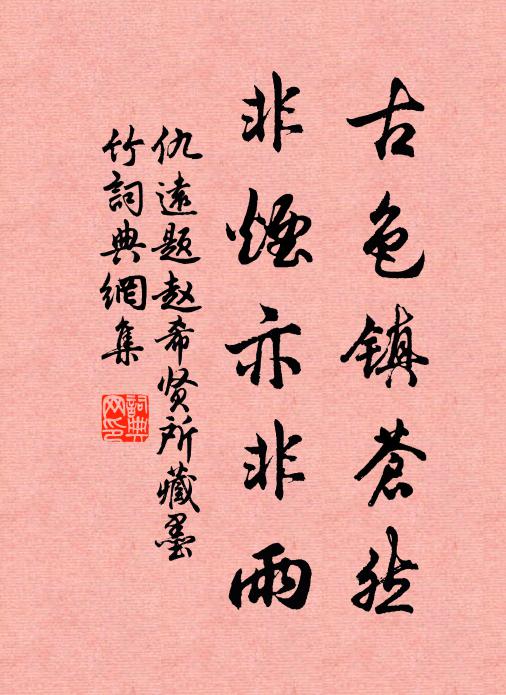 古色镇蒼然
非煙亦非雨
仇遠题赵希贤所藏墨
竹詞典網集
詞典
网印